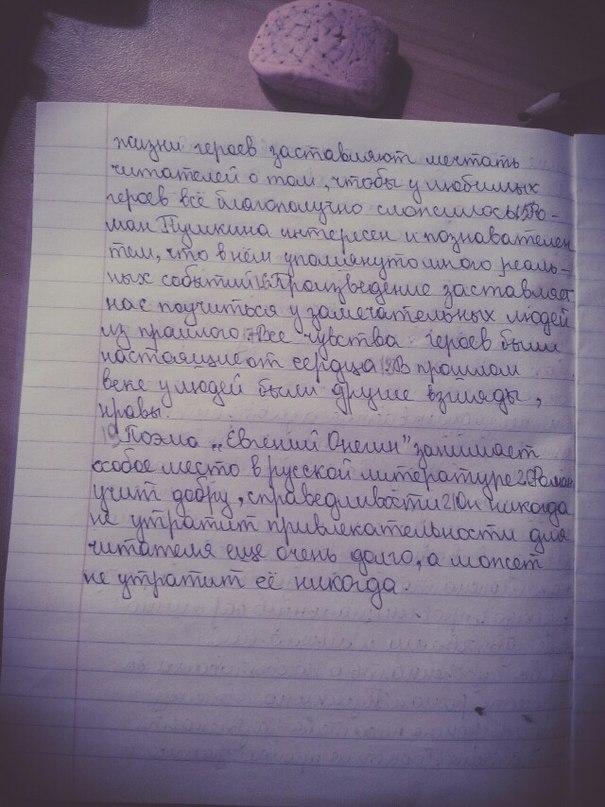 жизни героев заставляют мечтать
читателей о том, чтобы у любимых
героев всё благополучно сложилось. 15Ро-
ман Пушкина интересен и познавателен
тем, что в нём упомянуто много реаль-
ных событий. 16Произведение заставляет
нас поучиться у замечательных людей
из прошлого. 17Все чувства героев были
настоящие от сердца. 18В прошлом
веке у людей были другие взгляды,
нравы.
19Поэма „Евгений Онегин" занимает
особое место в русской литературе. 20Роман
учит добру, справедливости. 21Он никогда
не утратит привлекательности для
читателя ещё очень долго, а может
не утратит её никогда.